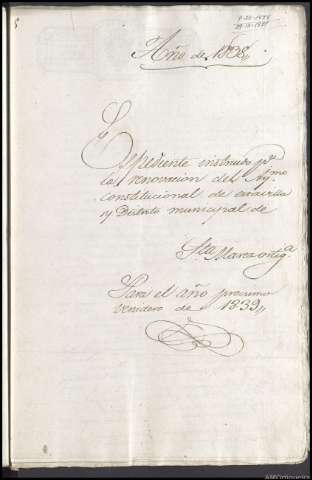 Año de 1838,,
Expediente instruido pa
la renovacion del Aymo
Constitucional de esta villa
y Distrito municipal de
Sta Marta ortiga
Para el año procsimo
venidero de 1839,,